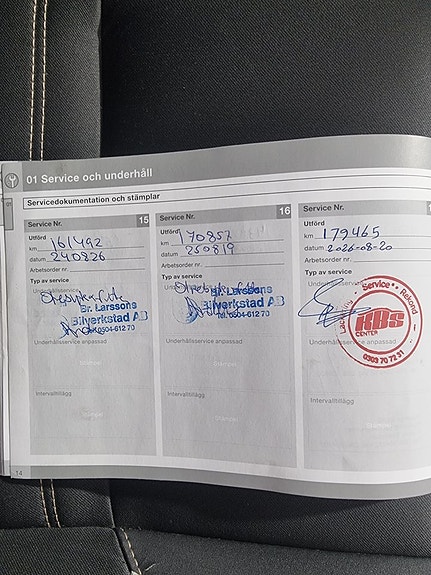 01 Service och underhåll
Servicedokumentation och stämplar
Service Nr. 15
Utförd
km 161492
datum 240826
Arbetsorder nr.
Typ av service
Underhållsservice
Br. Larssons
Bilverkstad AB
0504-612 70
Underhållsservice anpassad
Intervalltillägg
Stämpel
Service Nr. 16
Utförd
km 170857
datum 250819
Arbetsorder nr.
Typ av service
Br. Larssons
Bilverkstad AB
Tel. 0504-612 70
Underhållsservice anpassad
Intervalltillägg
Stämpel
Service Nr.
Utförd
km 179465
datum 2026-08-20
Arbetsorder nr.
Typ av service
Underhållsservice
Service
Rekond
RBS
CENTER
0303 70 72 31
Underhållsservice anpassad
Intervalltillägg
Stämpel
14